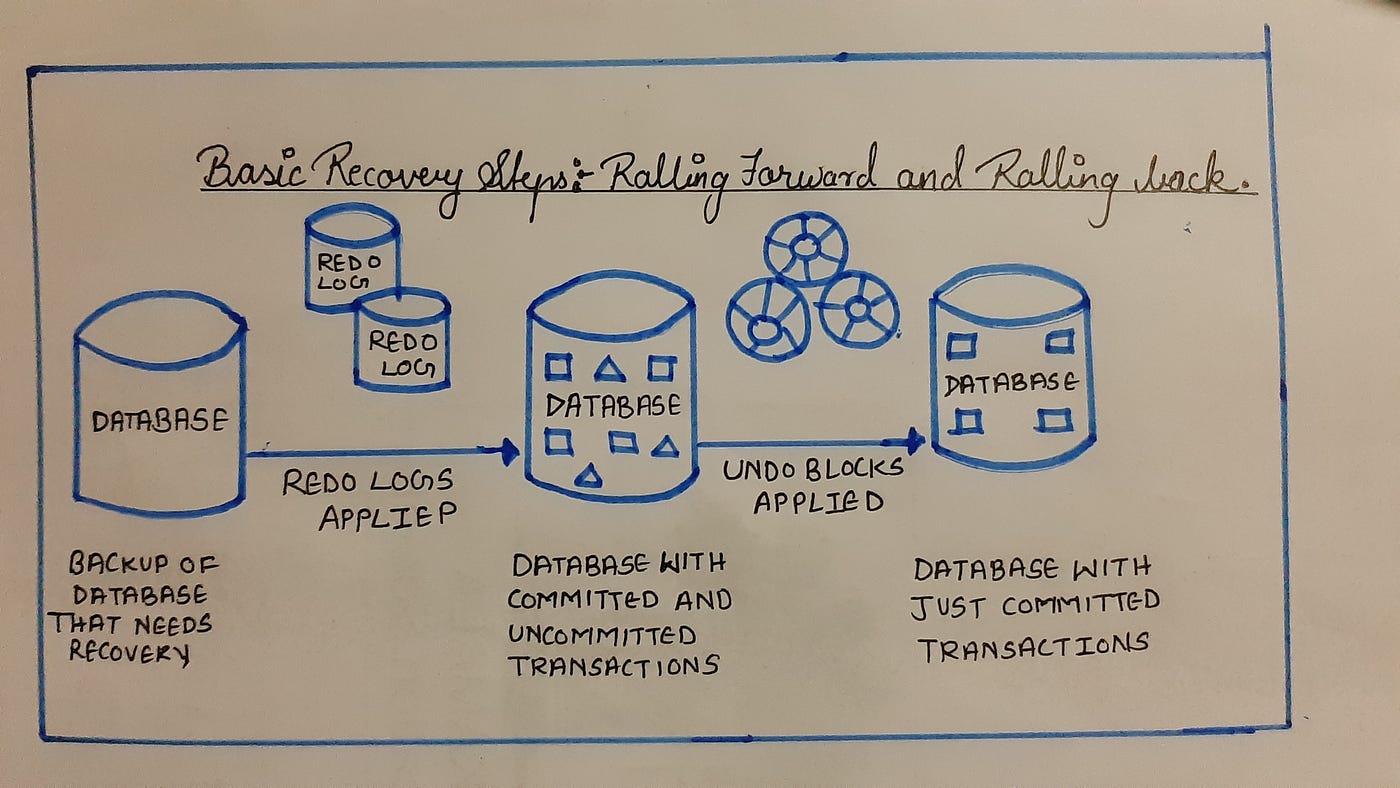 Basic Recovery Steps:- Ralling Forward and Ralling back.
REDO
LOG
REDO
LOG
DATABASE
DATABASE
DATABASE
REDO LOGS
APPLIEP
UNDO BLOCKS
APPLIED
BACKUP OF
DATABASE
THAT NEEDS
RECOVERY
DATABASE WITH
COMMITTED AND
UNCOMMITTED
TRANSACTIONS
DATABASE WITH
JUST COMMITTED
TRANSACTIONS